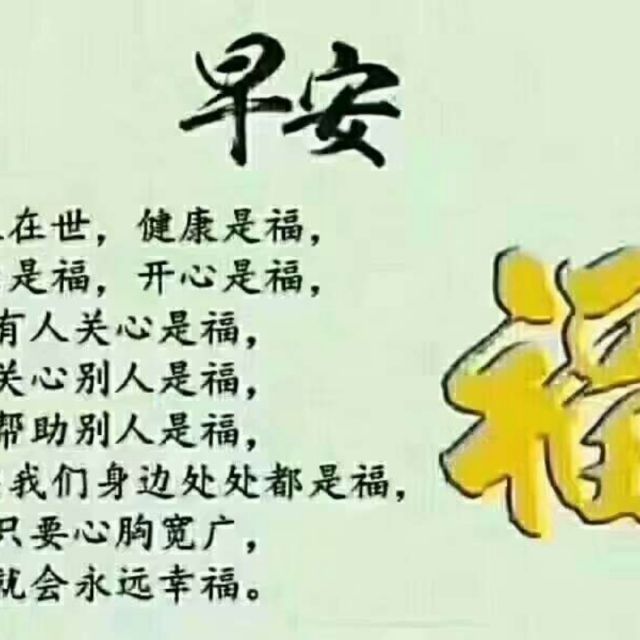 早安
在世，健康是福，
是福，开心是福，
有人关心是福，
关心别人是福，
帮助别人是福，
我们身边处处都是福，
只要心胸宽广，
就会永远幸福。
福